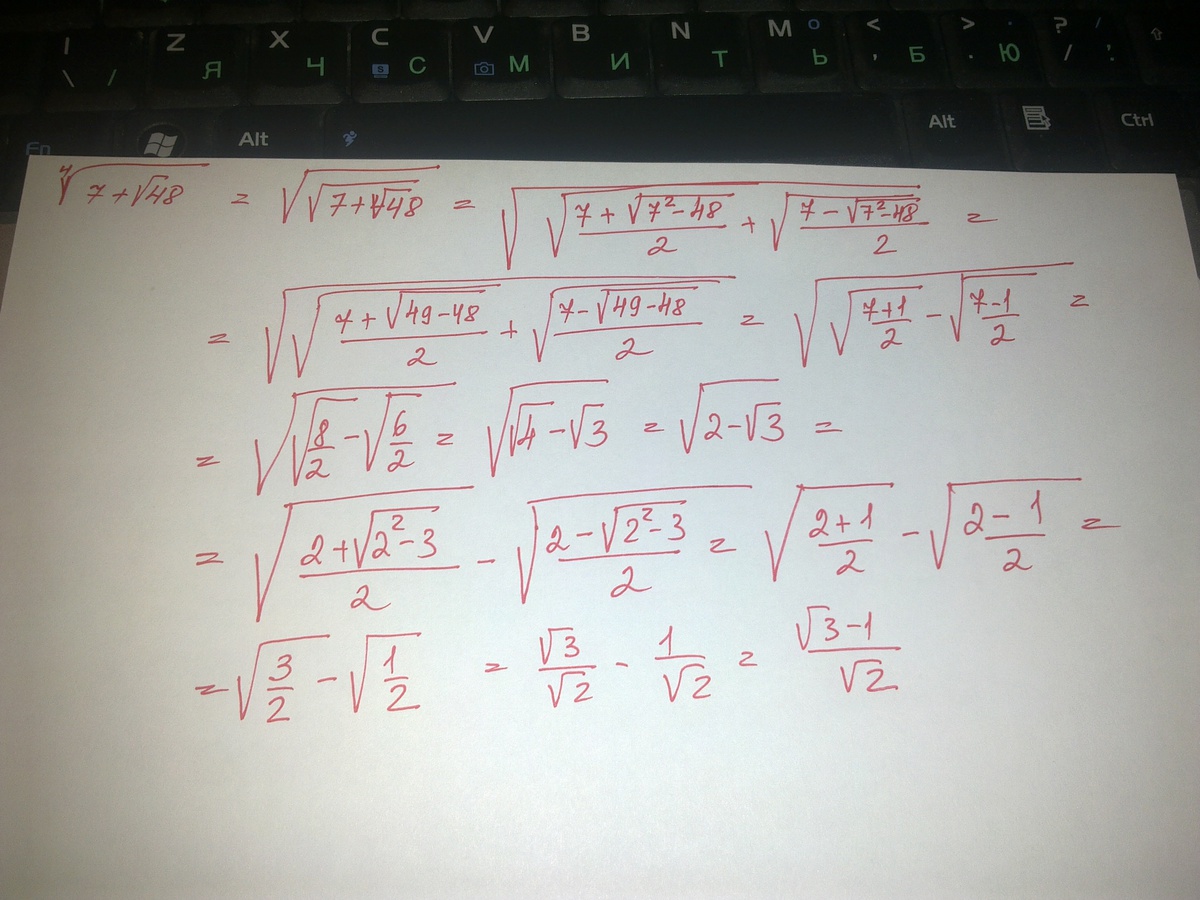 I Z X C V B N M O < > . ? /
\ / Я Ч S С М И Т Ь , Б . Ю / , :
Fn Alt Alt Ctrl
⁴√(7+√48) = √(√(7+√48)) = √(√((7+√(7²-48))/2) + √((7-√(7²-48))/2)) =
= √(√((7+√(49-48))/2) + √((7-√(49-48))/2)) = √(√((7+1)/2) - √((7-1)/2)) =
= √(√(8/2) - √(6/2)) = √(√4 - √3) = √(2-√3) =
= √((2+√(2²-3))/2) - √((2-√(2²-3))/2) = √((2+1)/2) - √((2-1)/2) =
= √(3/2) - √(1/2) = √3/√2 - 1/√2 = (√3-1)/√2